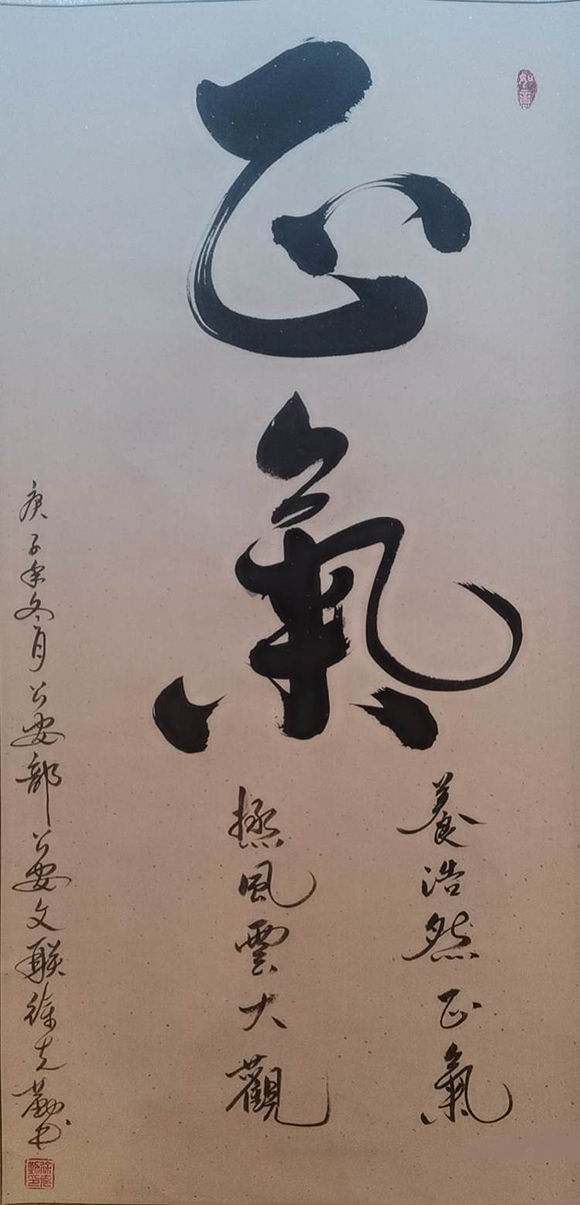 如意
正氣
養浩然正氣
極風雲大觀
庚子年冬月公安部公安文联徐克勤书